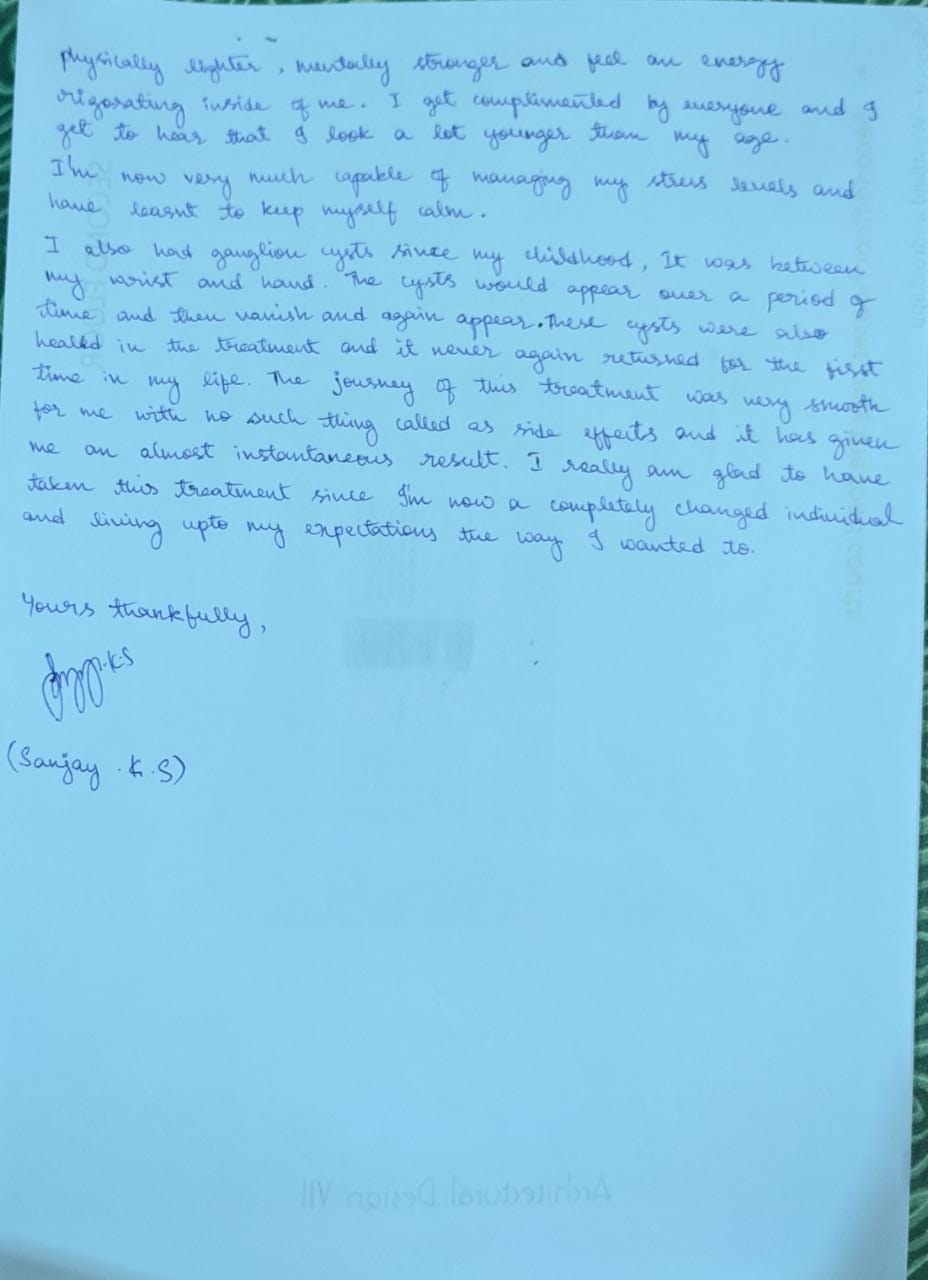 physically lighter, mentally stronger and feel an energy
rigorating inside of me. I get complimented by everyone and I
get to hear that I look a lot younger than my age.
I'm now very much capable of managing my stress levels and
have learnt to keep myself calm.
I also had ganglion cysts since my childhood, It was between
my wrist and hand. The cysts would appear over a period of
time and then vanish and again appear. These cysts were also
healed in the treatment and it never again returned for the first
time in my life. The journey of this treatment was very smooth
for me with no such thing called as side effects and it has given
me an almost instantaneous result. I really am glad to have
taken this treatment since I'm now a completely changed individual
and living upto my expectations the way I wanted to.
Yours thankfully,
K.S
(Sanjay .K.S)
Architectural Design VII